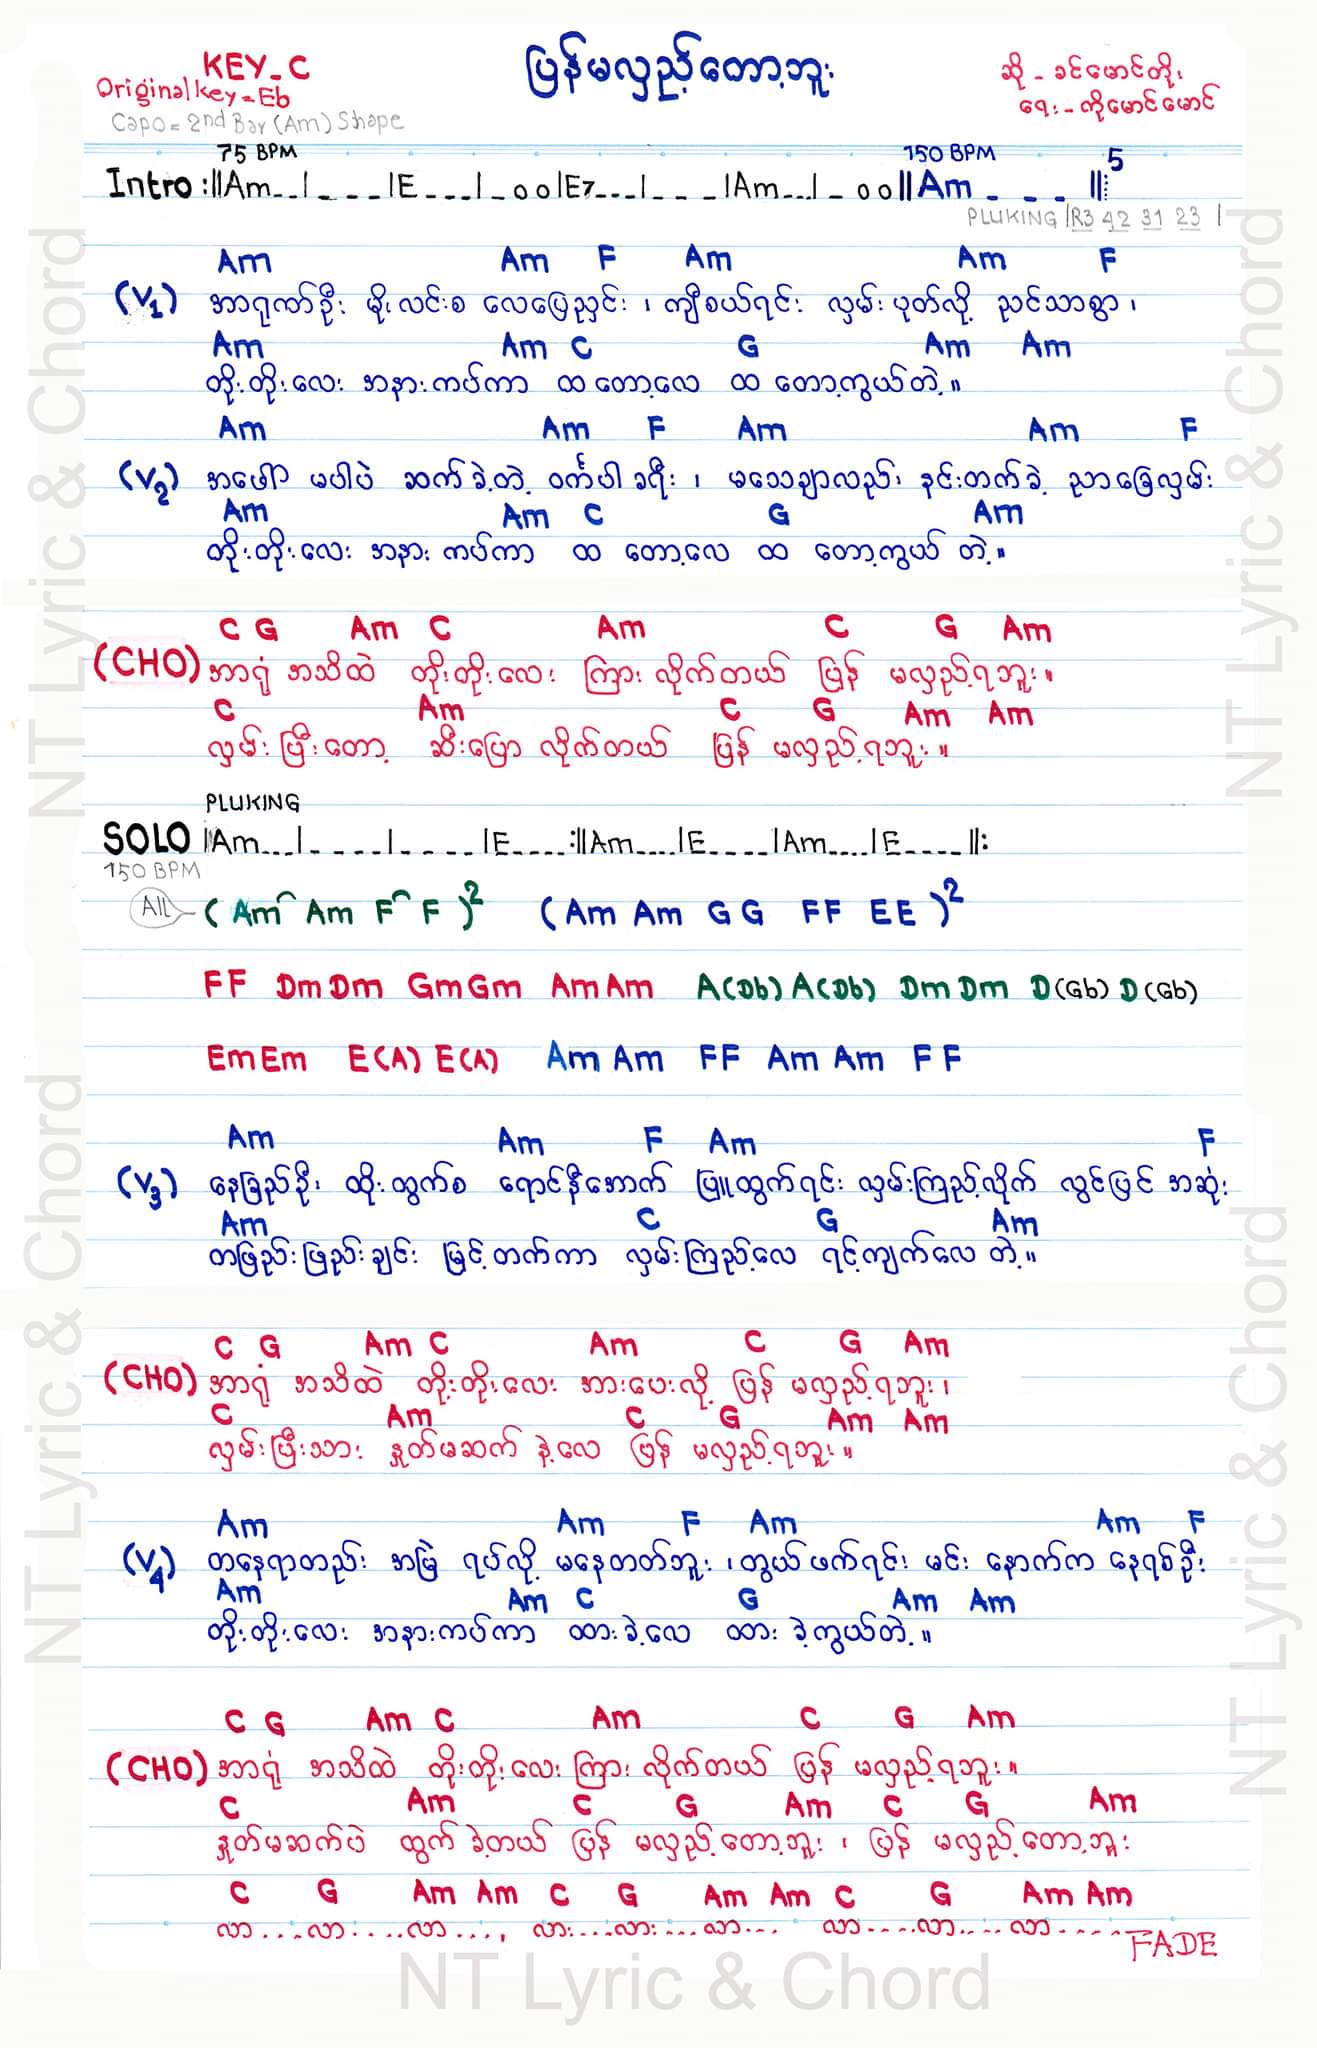 KEY_C
Original key = Eb
Capo = 2nd Bar (Am) Shape
ပြန်မလှည့်တော့ဘူး
ဆို - ခင်မောင်တိုး
ရေး - ကိုမောင်မောင်
75 BPM 150 BPM
Intro :||Am--|_---|E---|-oo|E7---|---|Am---|-oo||Am - - - ||: 5
PLUKING |R3 42 31 23 |
Am Am F Am Am F
(V1) အာရုဏ်ဦး မိုးလင်းစ လေပြေညှင်း ၊ ကျီစယ်ရင်း လှမ်းပုတ်လို့ ညင်သာစွာ ၊
Am Am C G Am Am
တိုးတိုးလေး အနားကပ်ကာ ထ တော့လေ ထ တော့ကွယ်တဲ့ ။
Am Am F Am Am F
(V2) အဖေါ် မပါပဲ ဆက်ခဲ့တဲ့ ဝင်္ကပါခရီး ၊ မသေချာလည်း နင်းတက်ခဲ့ ညာခြေလှမ်း
Am Am C G Am
တိုးတိုးလေး အနားကပ်ကာ ထ တော့လေ ထ တော့ကွယ် တဲ့ ။
C G Am C Am C G Am
(CHO) အာရုံ အသိထဲ တိုးတိုးလေး ကြားလိုက်တယ် ပြန် မလှည့်ရဘူး ။
C Am C G Am Am
လှမ်းပြီးတော့ ဆီးပြောလိုက်တယ် ပြန် မလှည့်ရဘူး ။
PLUKING
SOLO ||Am---|----|----|E----:||Am----|E----|Am----|E----||:
150 BPM
All ( Am Am F F )2 ( Am Am G G FF EE )2
FF Dm Dm Gm Gm Am Am A(Db) A(Db) Dm Dm D(Gb) D(Gb)
Em Em E(A) E(A) Am Am FF Am Am F F
Am Am F Am F
(V3) နေခြည်ဦး ထိုးထွက်စ ရောင်နီအောက် ပြူထွက်ရင်း လှမ်းကြည့်လိုက် လွင်ပြင်အဆုံး
Am C G Am
တဖြည်းဖြည်းချင်း မြင့်တက်ကာ လှမ်းကြည့်လေ ရင့်ကျက်လေ တဲ့ ။
C G Am C Am C G Am
(CHO) အာရုံ အသိထဲ တိုးတိုးလေး အားပေးလို့ ပြန် မလှည့်ရဘူး ၊
C Am C G Am Am
လှမ်းပြီးသား နှုတ်မဆက် နဲ့လေ ပြန် မလှည့်ရဘူး ။
Am Am F Am Am F
(V4) တနေရာတည်း အမြဲ ရပ်လို့ မနေတတ်ဘူး ၊ တွယ်ဖက်ရင်း မင်း နောက်က နေရစ်ဦး
Am Am C G Am Am
တိုးတိုးလေး အနားကပ်ကာ ထားခဲ့လေ ထား ခဲ့ကွယ်တဲ့ ။
C G Am C Am C G Am
(CHO) အာရုံ အသိထဲ တိုးတိုးလေး ကြားလိုက်တယ် ပြန် မလှည့်ရဘူး ။
C Am C G Am C G Am
နှုတ်မဆက်ပဲ ထွက်ခဲ့တယ် ပြန် မလှည့်တော့ဘူး ၊ ပြန် မလှည့်တော့ဘူး
C G Am Am C G Am Am C G Am Am
လာ ...လာ ....လာ ...., လား....လား...လာ ... လာ ....လာ....လာ ....
FADE
NT Lyric & Chord
NT Lyric & Chord
NT Lyric & Chord
NT Lyric & Chord
NT Lyric & Chord